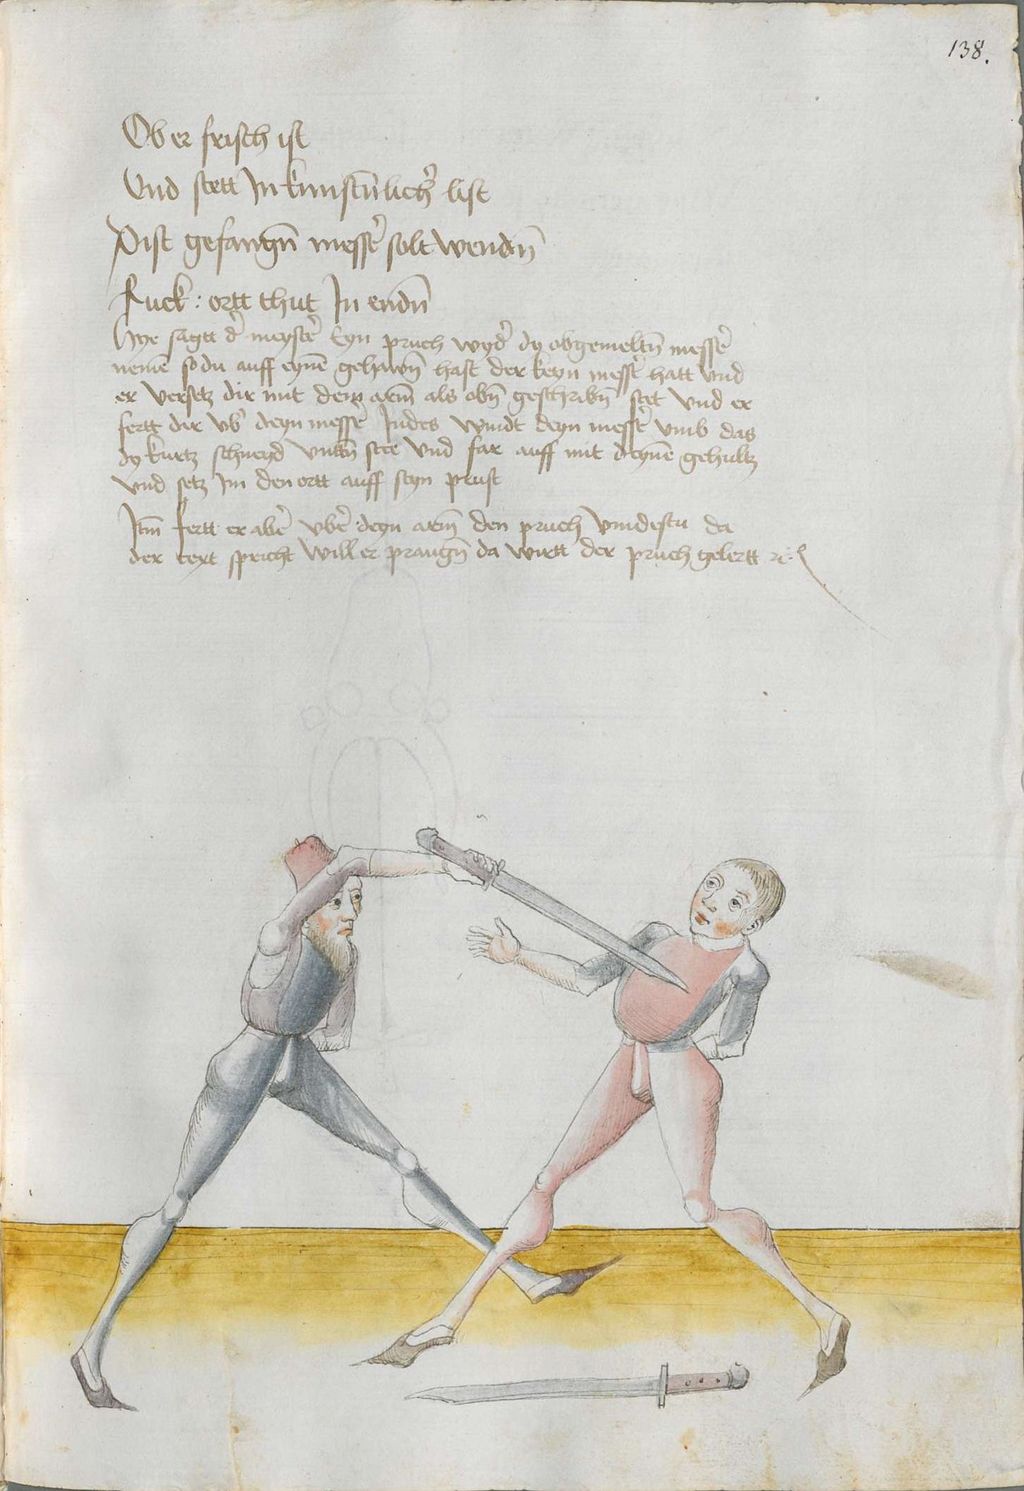 138.
Ob er frisch ist
Vnd stett Jn kunstñlich̛ list
Pist gefangñ messe̛ solt wendñ
Ruck: ortt thut Jn endñ
Hye sagtt d̛ meyste̛ Eyn pruch wyd̛ dy obgemeltñ messe̛
nemē so du auff eynē gehawñ hast der keyn messe̛ hatt vnd
er versetz dir mit dem arm̃ als obñ geschribñ stet vnd er
fertt dir vb̛ deyn messe̛ Jndes windt deyn messe̛ vmb das
dy kurtz schneyd vnttñ stee vnd far auff mit deynē gehultz
vnd setz im den ortt auff seyn prust
Jtm̃ fertt er abe̛ vbe̛ deyn arm̃ den pruch vindestu da
der text spricht will er prangñ da wirtt der pruch gelertt ꝛc